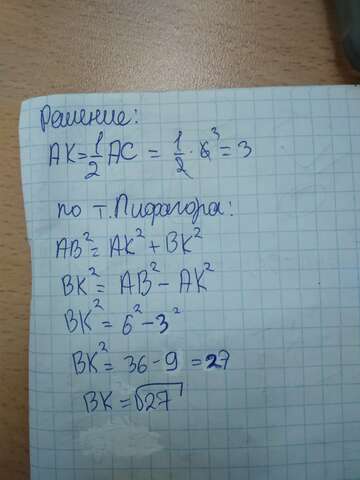 Решение:
AK = 1/2 AC = 1/2 · 6³ = 3
по т. Пифагора:
AB² = AK² + BK²
BK² = AB² - AK²
BK² = 6² - 3²
BK² = 36 - 9 = 27
BK = √27